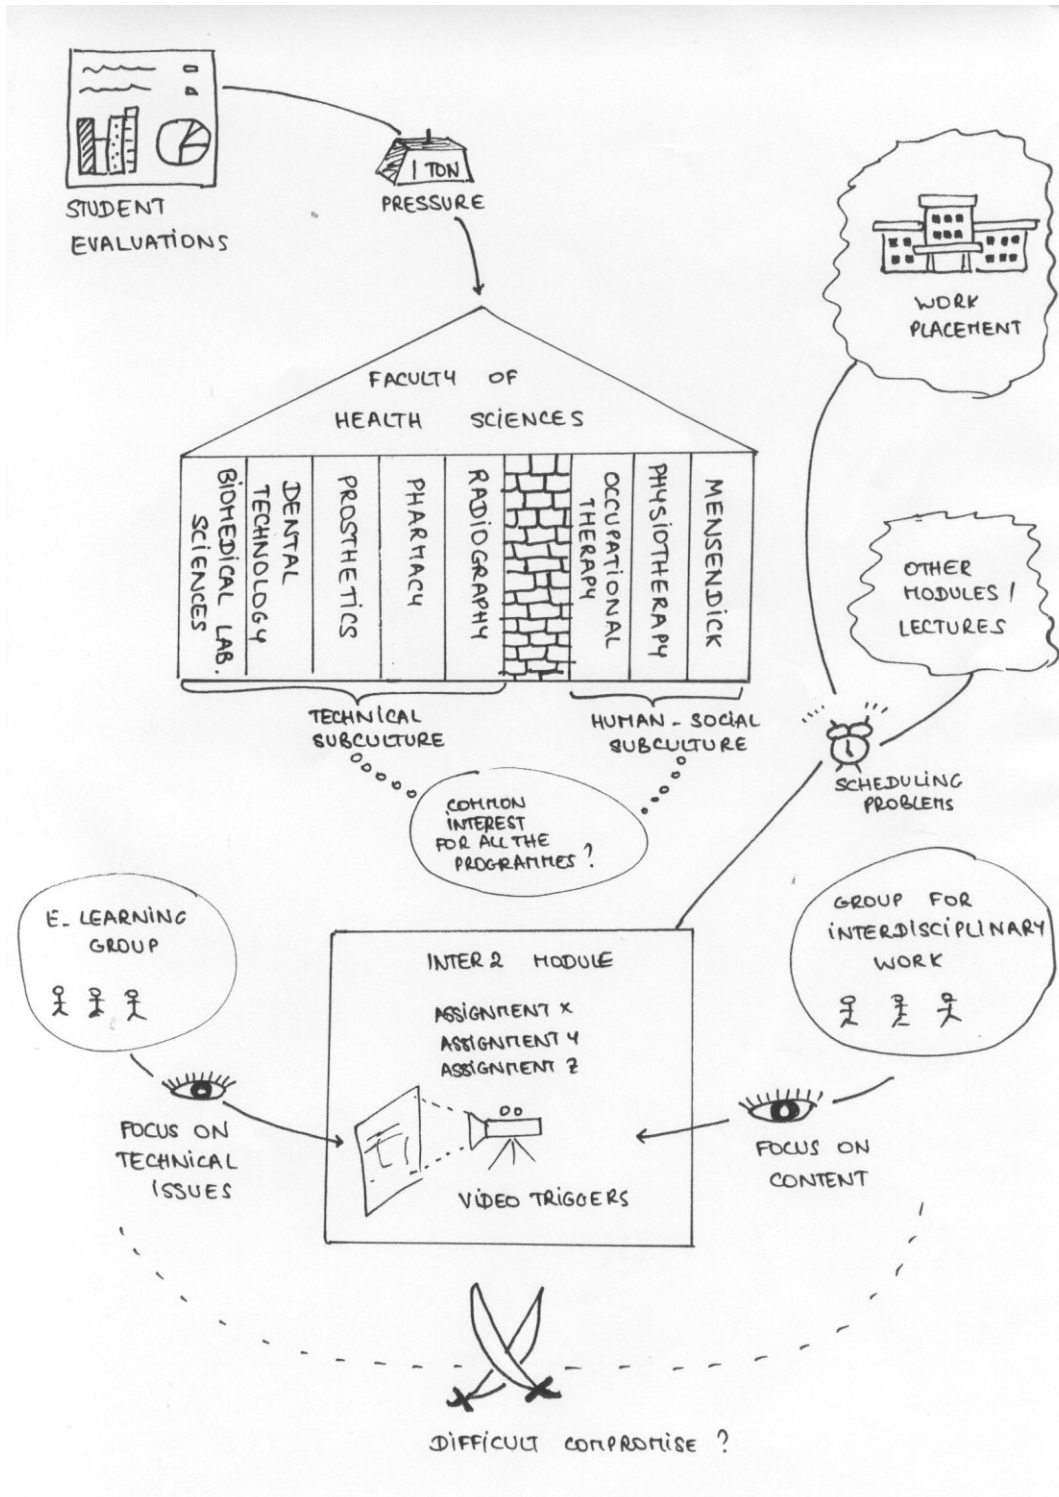 STUDENT
EVALUATIONS
1 TON
PRESSURE
WORK
PLACEMENT
FACULTY OF
HEALTH SCIENCES
BIOMEDICAL LAB.
SCIENCES
DENTAL
TECHNOLOGY
PROSTHETICS
PHARMACY
RADIOGRAPHY
OCCUPATIONAL
THERAPY
PHYSIOTHERAPY
MENSENDICK
OTHER
MODULES /
LECTURES
TECHNICAL
SUBCULTURE
HUMAN-SOCIAL
SUBCULTURE
SCHEDULING
PROBLEMS
COMMON
INTEREST
FOR ALL THE
PROGRAMMES?
E-LEARNING
GROUP
GROUP FOR
INTERDISCIPLINARY
WORK
INTER2 MODULE
ASSIGNMENT X
ASSIGNMENT Y
ASSIGNMENT Z
VIDEO TRIGGERS
FOCUS ON
TECHNICAL
ISSUES
FOCUS ON
CONTENT
DIFFICULT COMPROMISE?